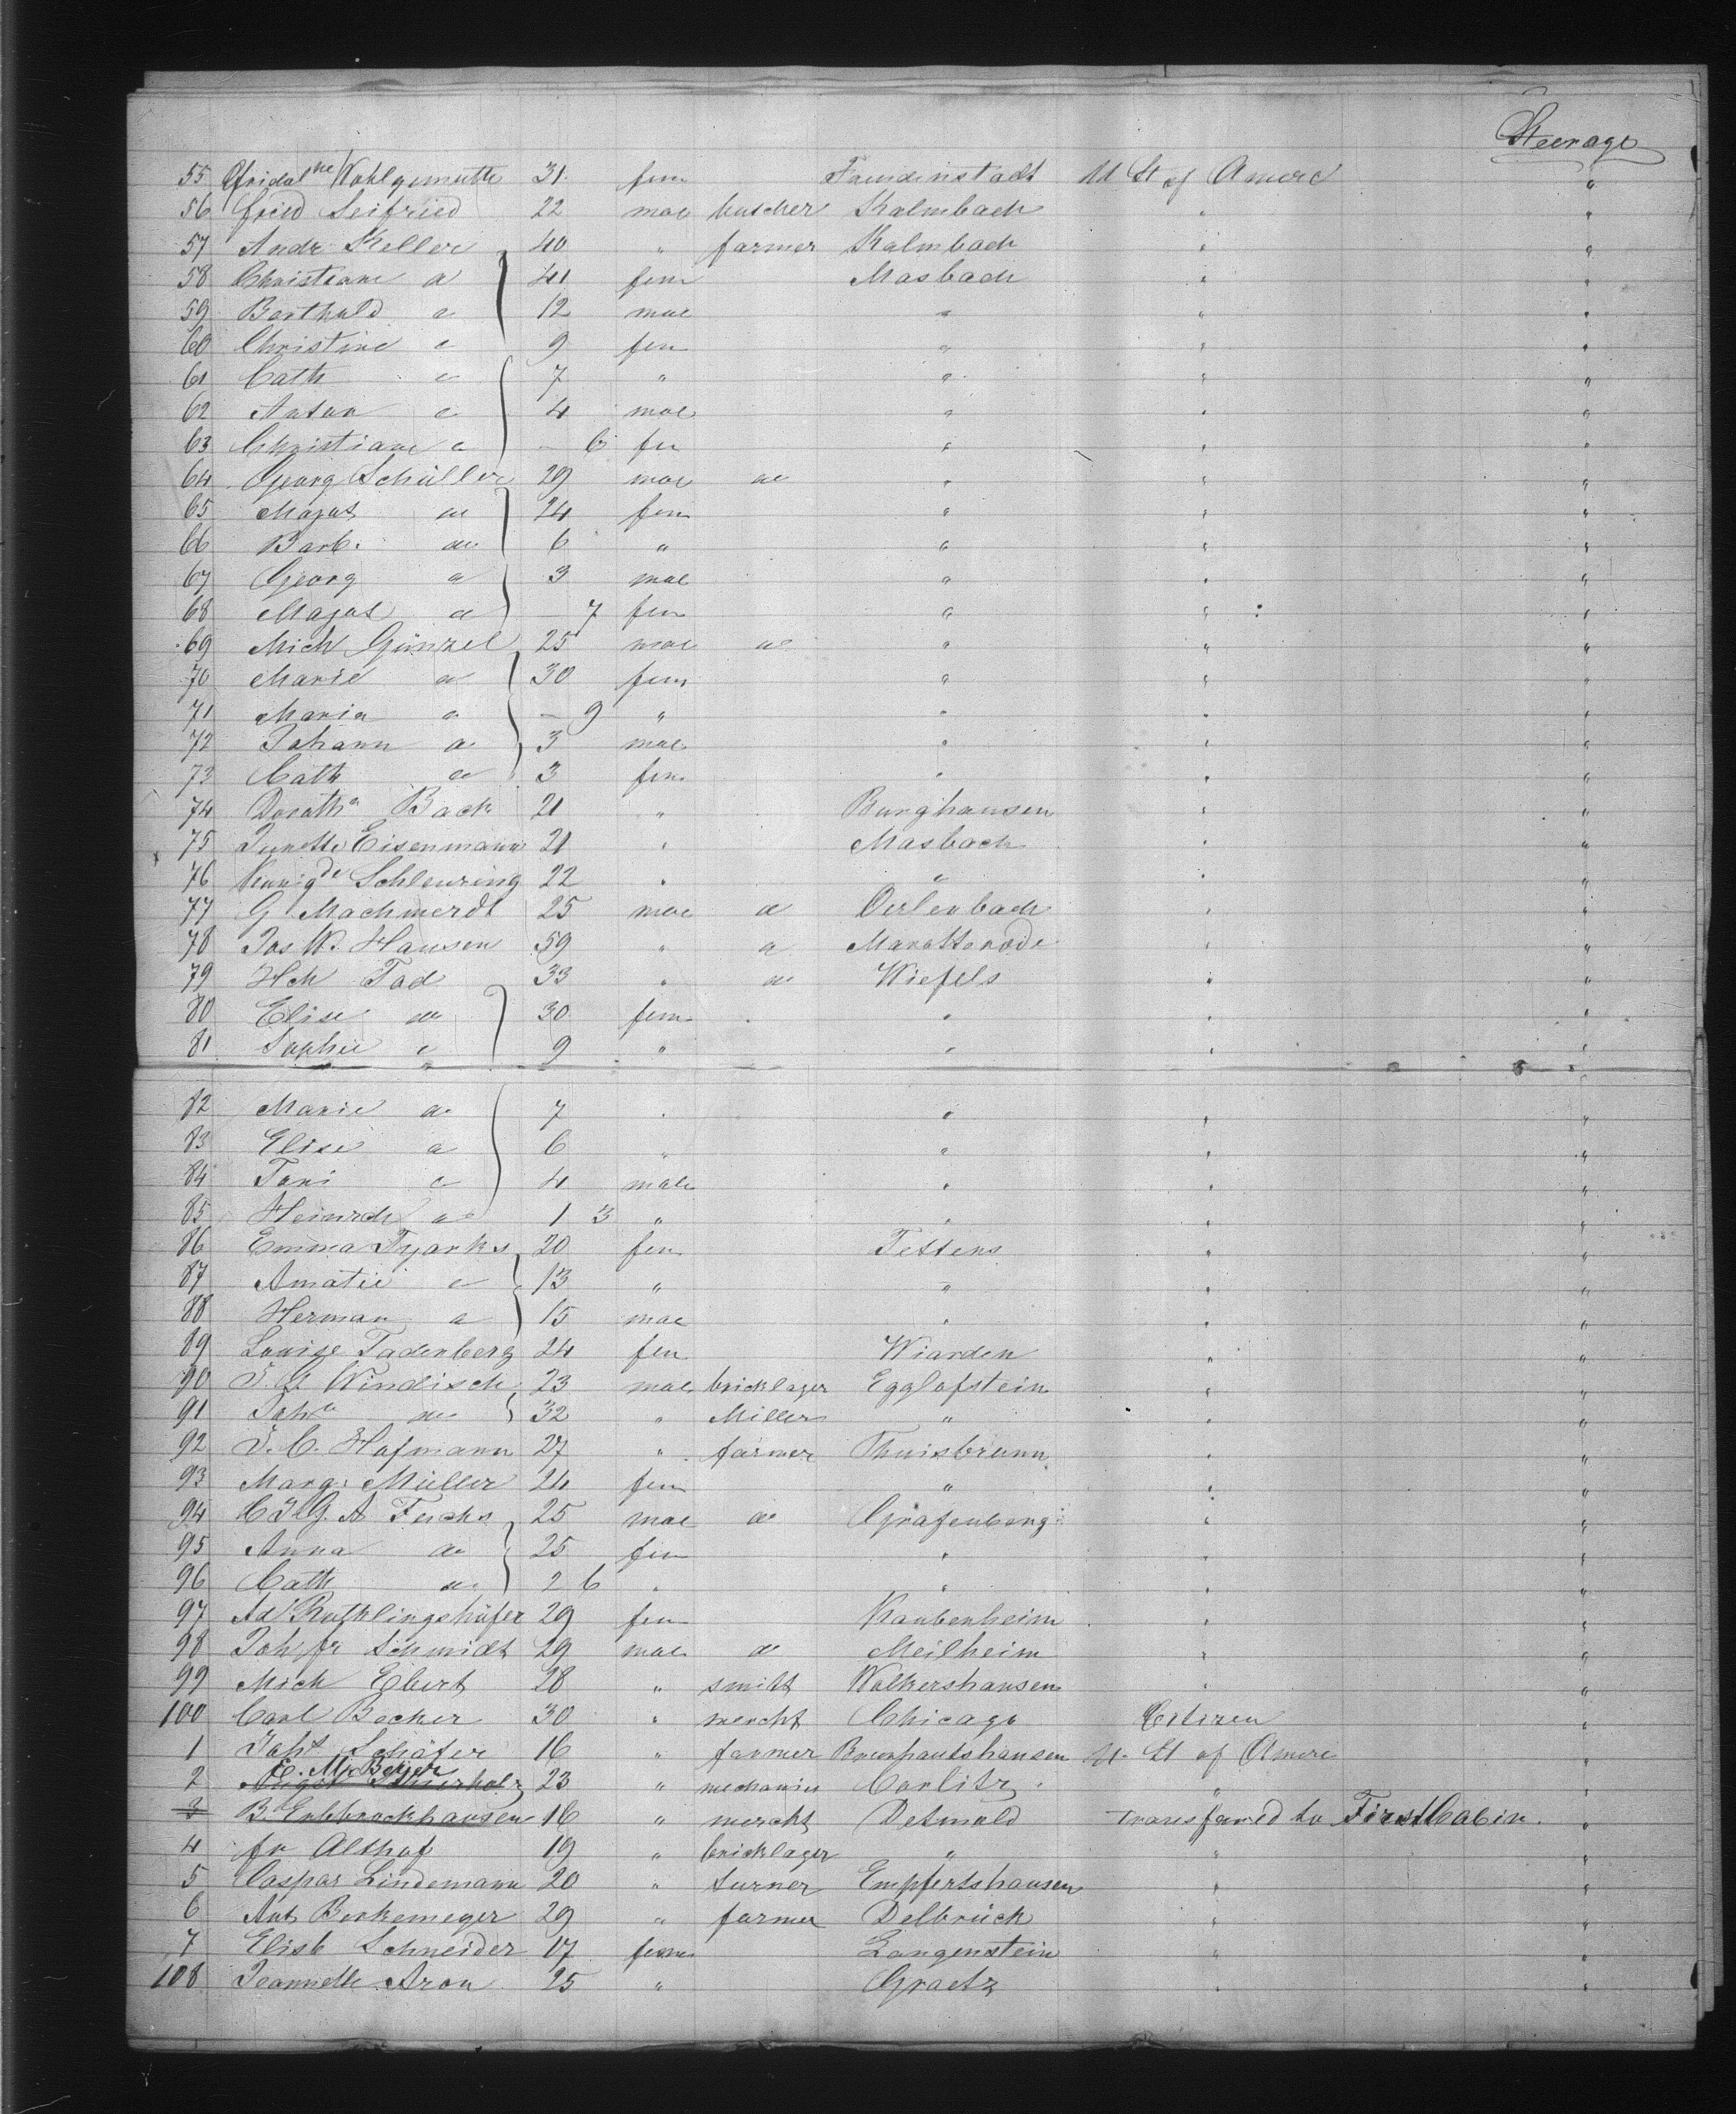 Steerage
55 Fridal ne Wohlgemuth 31 fem Freudenstadt U St of Amerc "
56 fried Seifried 22 mae butcher Kalmbach " "
57 Andr Keller 40 " farmer Kalmbach " "
58 Christiane a 41 fem Masbach " "
59 Barthold a 12 mae " " "
60 Christine a 9 fem " " "
61 Cath a 7 " " " "
62 Anton a 4 mae " " "
63 Christiane a — 6 fem " " "
64 Georg Schüller 29 mae a " " "
65 Margt a 24 fem " " "
66 Barb. a 6 " " " "
67 Georg a 3 mae " " "
68 Margt a — 7 fem " " "
69 Mich Günzel 25 mae a " " "
70 Marie a 30 fem " " "
71 Maria a — 9 " " " "
72 Johann a 3 mae " " "
73 Cath a 3 fem " " "
74 Doroth a Back 21 " Burghausen " "
75 Jynette Eisenmann 21 " Masbach " "
76 Kunigde Schleuring 22 " " " "
77 G Machmerdt 25 mae a Oerlenbach " "
78 Jos W. Hansen 59 " a Marottorode " "
79 Hch Tad 33 " a Wiefels " "
80 Elise a 30 fem " " "
81 Sophie a 9 " " " "
82 Marie a 7 " " " "
83 Elise a 6 " " " "
84 Toni a 4 male " " "
85 Heinrch a 1 3 " " " "
86 Emma Tyarks 20 fem Tettens " "
87 Amatie a 13 " " " "
88 Herman a 15 mae " " "
89 Louise Tadenberg 24 fem Wiarden " "
90 J. G Windisch 23 mae bricklager Egglofstein " "
91 Joh a 32 " Miller " " "
92 J. C. Hofmann 27 " farmer Thuisbrunn " "
93 Marg. Müller 24 fem " " "
94 C J G. A Fuchs 25 mae a Grafenberg " "
95 Anna a 25 fem " " "
96 Cath a 2 6 " " " "
97 Ad Ruthlingshöfer 29 fem Kaubenheim " "
98 Joh fr Schmidt 29 mae a Meilheim " "
99 Mich Ebert 28 " smith Walkershausen " "
100 Carl Becker 30 " mercht Chicago Citizen "
1 Joh Schäfer 16 " farmer U. St of Amerc "
2 E. M. Beyer 23 " mechanien Corlitz " "
3 B Enbbrockhausen 16 " mercht Detmold transferred to First Cabin "
4 fr Althof 19 " bricklager " " "
5 Caspar Lindemann 20 " turner Empfertshausen " "
6 Ant Berkemeger 29 " farmer Delbrück " "
7 Elisb Schneider 17 fem Langenstein " "
108 Jeannette Aron 25 " Graetz " "